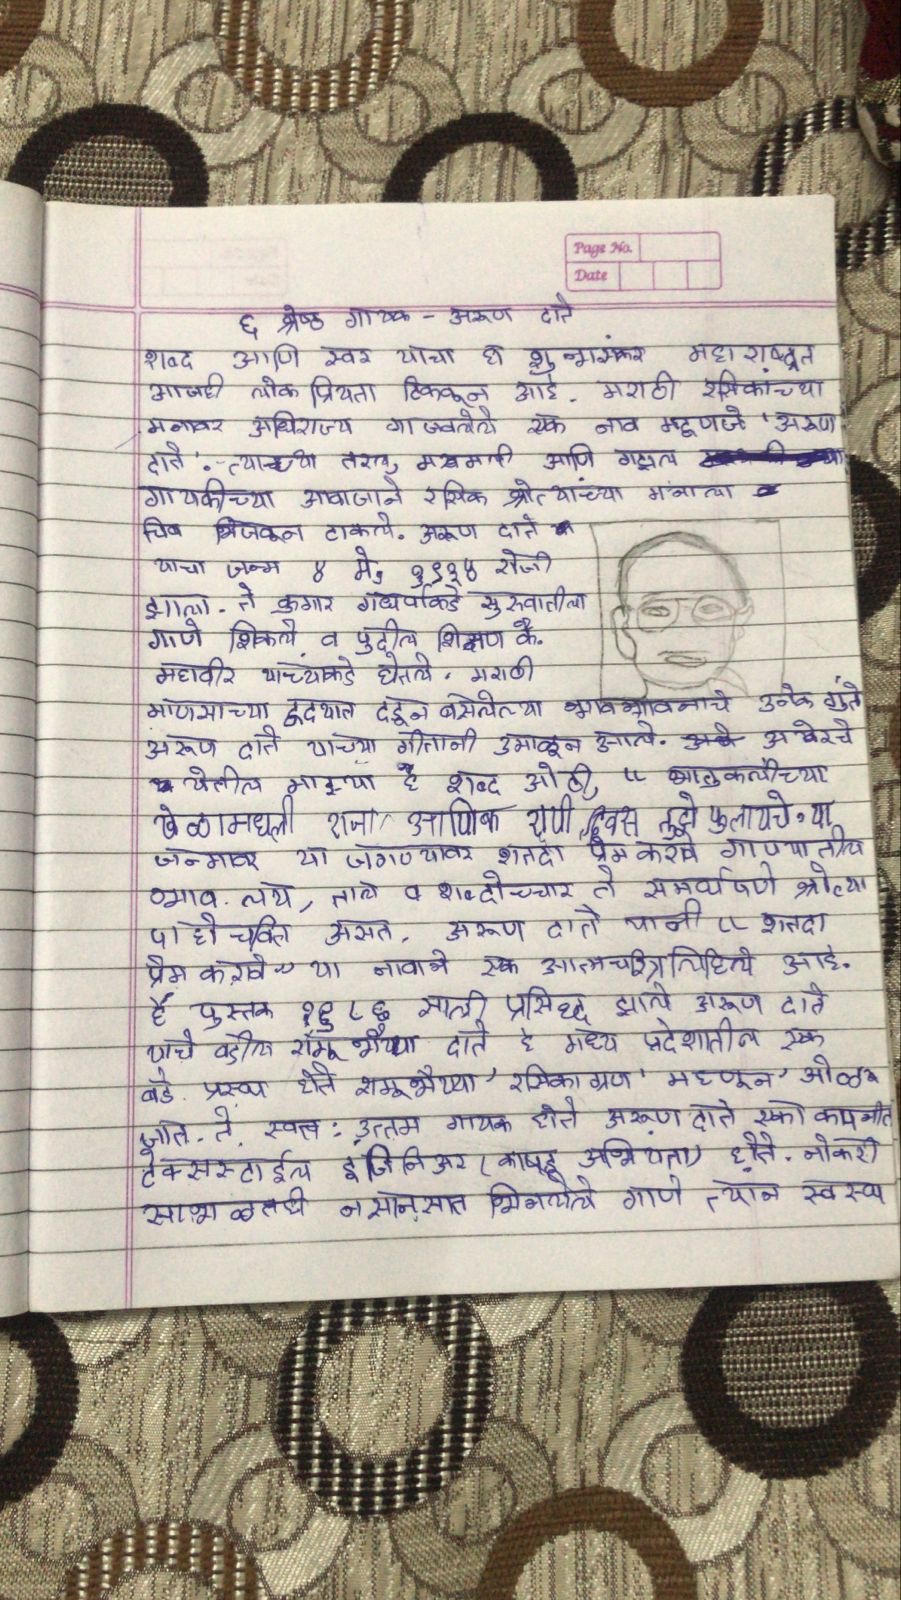 Page No.
Date
६ श्रेष्ठ गायक - अरूण दाते
शब्द आणि स्वर याचा हा महाराष्ट्रात
आजही लोक प्रियता टिकवून आहे. मराठी रसिकांच्या
मनावर अधिराज्य गाजवलेले एक नाव म्हणजे 'अरूण
दाते'. त्याच्या तरल, मखमली आणि गहाल
गायकीच्या आवाजाने रसिक श्रोत्यांच्या मनाला
चिंब भिजवून टाकले. अरूण दाते
याचा जन्म ४ मे, १९३४ रोजी
झाला. ते कुमार गंधर्वाकडे सुरुवातीला
गाणे शिकले व पुढील शिक्षण के.
महावीर याच्याकडे घेतले. मराठी
माणसाच्या हृदयात दडून बसलेल्या भावभावनाचे अनेक गुंते
अरूण दाते याच्या गीतानी उमाळून आले. अखेरचे
येतील माझ्या हे शब्द ओठी, " भातुकलीच्या
खेळामधली राजा आणिक राणी, दिवस तुझे फुलायचे, या
जन्मावर या जगण्यावर शतदा प्रेम करावे गाण्यातील
भाव. लय, ताल व शब्दोच्चार ते समर्थपणे श्रोत्या
पाहोचविते असत. अरूण दाते यानी " शतदा
प्रेम करावे " या नावाने एक आत्मचरित्र लिहिले आहे.
हे पुस्तक १९८६ साली प्रसिध्द झाले अरूण दाते
याचे वडील रामू भैय्या दाते हे मध्य प्रदेशातील एक
बडे प्रस्थ होते रामूभैय्या 'रसिकाग्रण' म्हणून ओळख
जाते. ते स्वत: उत्तम गायक होते अरूण दाते
टेक्सस्टाईल इंजिनिअर (कापड अभियंता) होते. नोकरी
साभाळतही नसानसात भिनलेले गाणे त्यान स्वस्थ